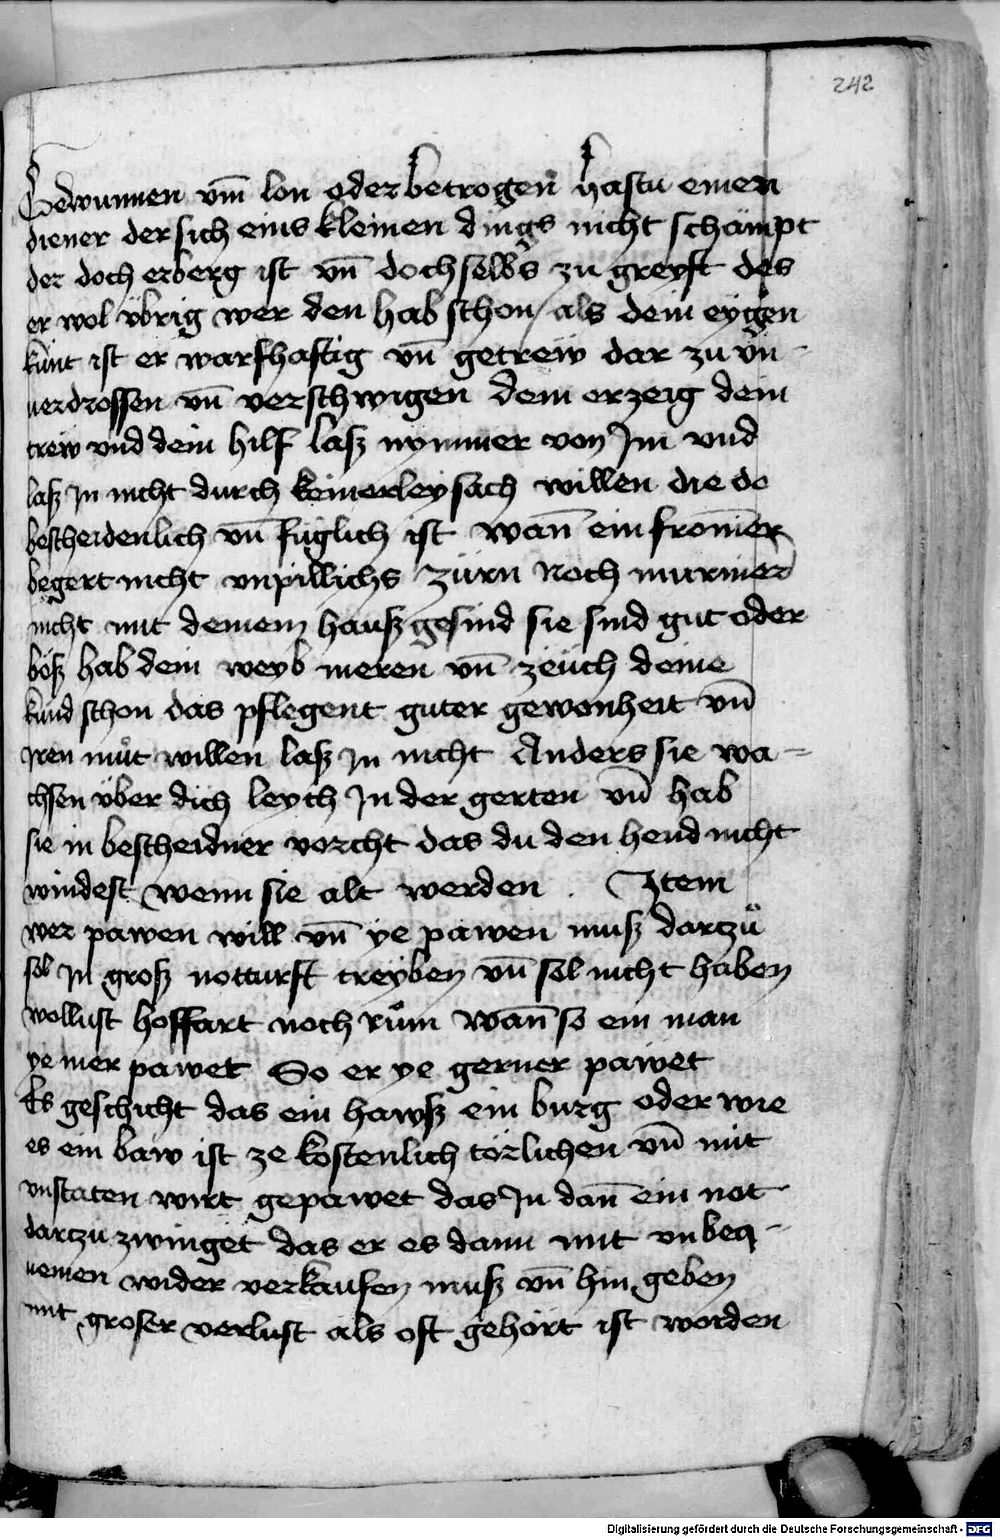 242
Gewunnen vm̄ lon oder betrogen hastu einen
diener der sich eins kleinen dings nicht schämpt
der doch erberg ist vn̄ doch selbs zu greyft des
er wol vbrig wer den hab schon / als dein eygen
kint ist er warfhaftig vn̄ getrew dar zu vn -
uerdrossen vn̄ verschwigen dem erzeig dein
trew vnd dein hilf lasz nymmer von Im vnd
lasz In nicht durch keinerley sach willen die do
bescheidenlich vn̄ fuglich ist wan̄ ein from̄er
begert nicht vnpillichs Zürn noch murmer
nicht mit deinem hausz gesind sie sind gut oder
bösz hab dein weyb meren vn̄ zeuch deine
kind schon das pflegent guter gewonheit vn̄
Iren můt willen lasz In nicht Anders sie wa -
chsen über dich leych In der gerten vn̄ hab
sie in bescheidner vorcht das du den hend nicht
windest wenn sie alt werden . Item
wer pawen will vn̄ ye pawen musz darzů
sol In grosz notturft treyben vn̄ sol nicht haben
wollust hoffart noch rům wan̄ so ein man
ye mer pawet So er ye gerner pawet
Es geschicht das ein hawsz ein burg oder wie
es ein baw ist ze kostenlich törlichen vn̄ mit
vnstaten wirt gepawet das In dan̄ ein not
darczu zwinget das er es dann mit vnbeq -
uemen wider verkaufen musz vn̄ hin geben
mit groser verlust als oft gehört ist worden
Digitalisierung gefördert durch die Deutsche Forschungsgemeinschaft - DFG